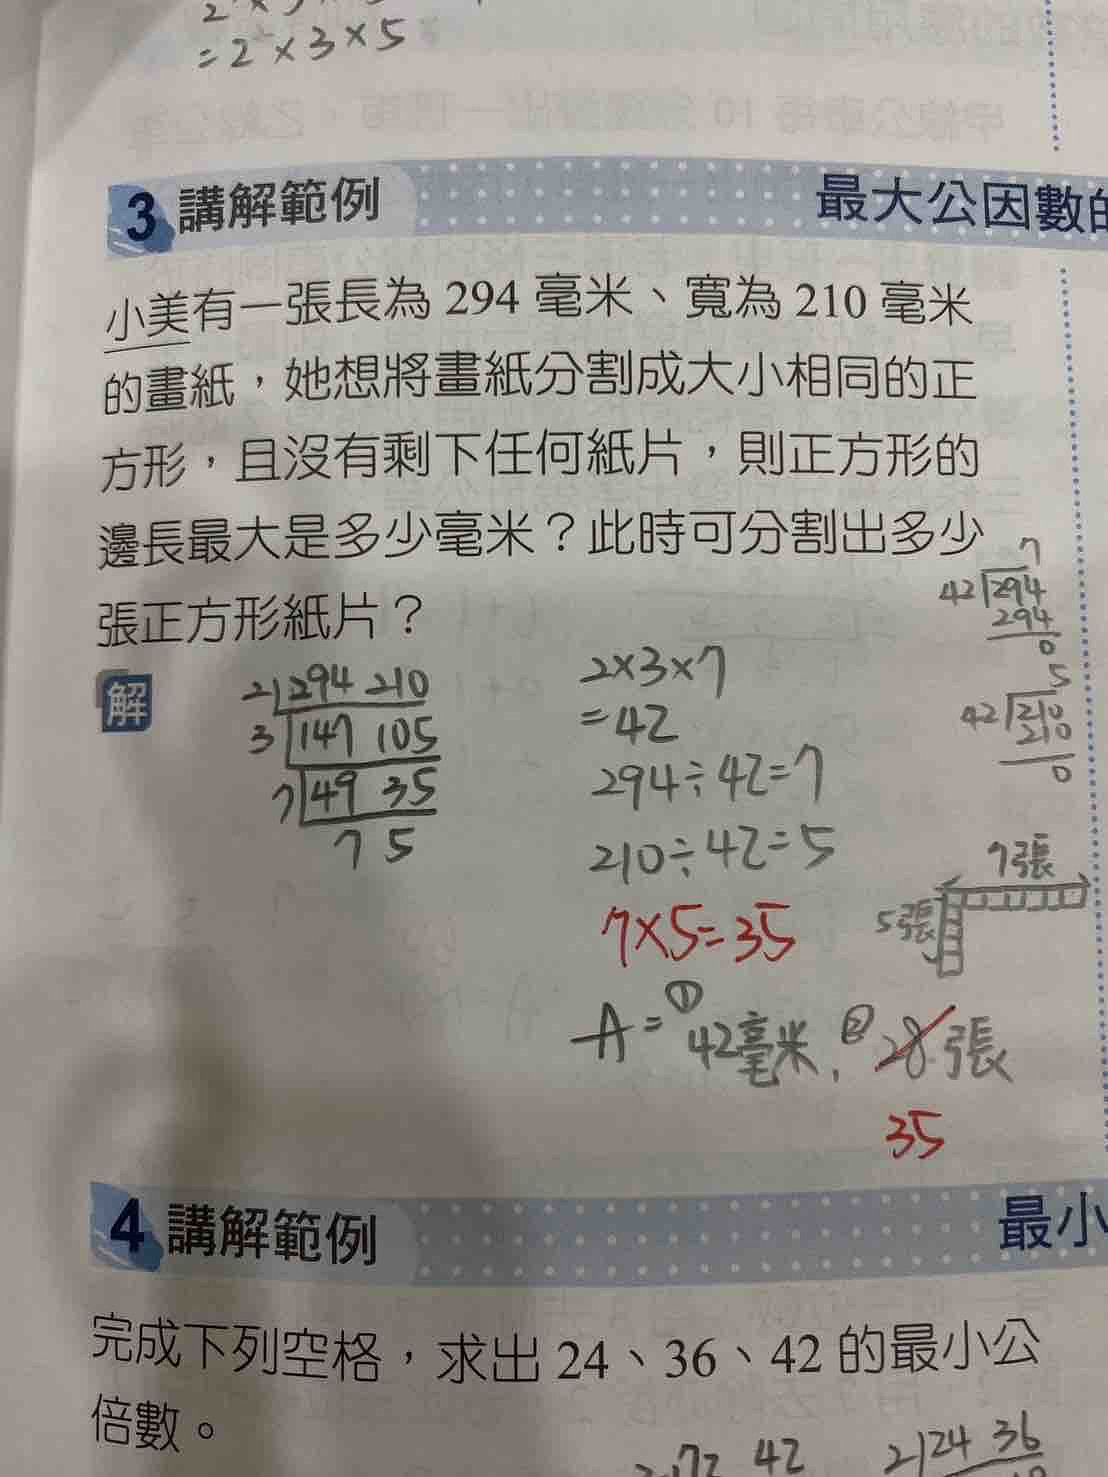 =2²×3×5
3 講解範例
最大公因數的
小美有一張長為 294 毫米、寬為 210 毫米
的畫紙，她想將畫紙分割成大小相同的正
方形，且沒有剩下任何紙片，則正方形的
邊長最大是多少毫米？此時可分割出多少
張正方形紙片？
解
2 294 210
3 147 105
7 49 35
7 5
2×3×7
=42
294÷42=7
210÷42=5
7×5=35
7
42 294
294
0
5
42 210
210
0
7張
5張
A=①42毫米, ②28張
35
4 講解範例
最小
完成下列空格，求出 24、36、42 的最小公
倍數。
42
2 24 36